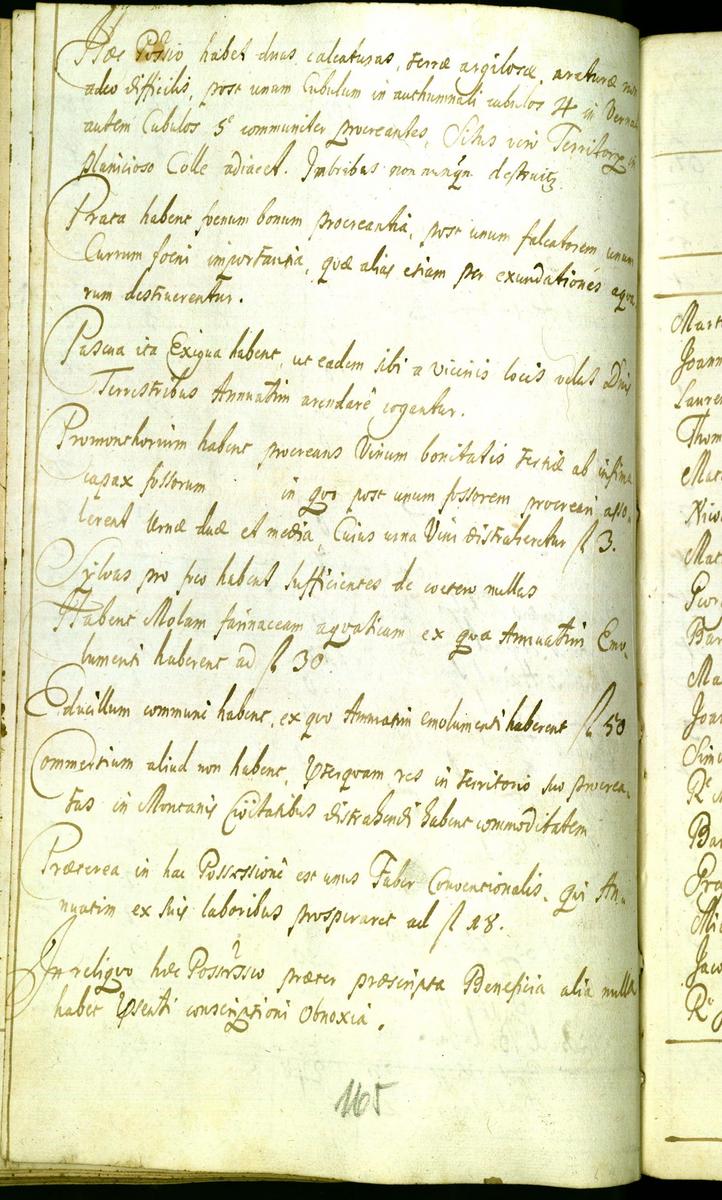 Hæc Possio habet duas calcaturas, terræ argilosæ, araturæ non
adeo difficilis, post unum Cubulum in authumnali cubulos 4 in Vernali
autem Cubulos 5 communiter procreantes, Situs vero Territory in
planicioso Colle adiacet. Imbribus non nunqn destruitur
Prata habent foenum bonum procreantia, post unum falcatorem unum
Currum foeni importantia, quæ alias etiam per exundationes aqua-
rum destruerentur.
Pascua ita Exigua habent, ut eadem sibi a vicinis locis velut Dnis
Terrestribus Annuatim arendare cogantur.
Promonthorium habent procreans Vinum bonitatis tertiæ ab infima
capax fossorum in quo post unum fossorem procreari asso-
lerent Urnæ duæ et media, Cuius urna Vini distraherentur fl 3.
Sylvas pro foco habent sufficientes de coetero nullas
Habent Molam farinaceam aquaticam ex qua Annuatim Emo-
lumenti haberent ad fl 30
Educillum communi habent, ex quo Annuatim emolumenti haberent fl 50
Commertium aliud non habent, Pterquam res in territorio suo procrea-
tas in Montanis Civitatibus distrahendi habent commoditatem
Præterea in hac Possessione est unus Faber Conventionalis, qui An-
nuatim ex suis laboribus prosperaret ad fl 18.
In reliquo hæc Possessio præter præscripta Beneficia alia nulla
habet Psenti conscriptioni obnoxia.
165
Mart
Joann
Laure
Thom
Mat
Nico
Mat
Geor
Bar
Ma
Joan
Simo
Bar
Pra
Mic
Jaco